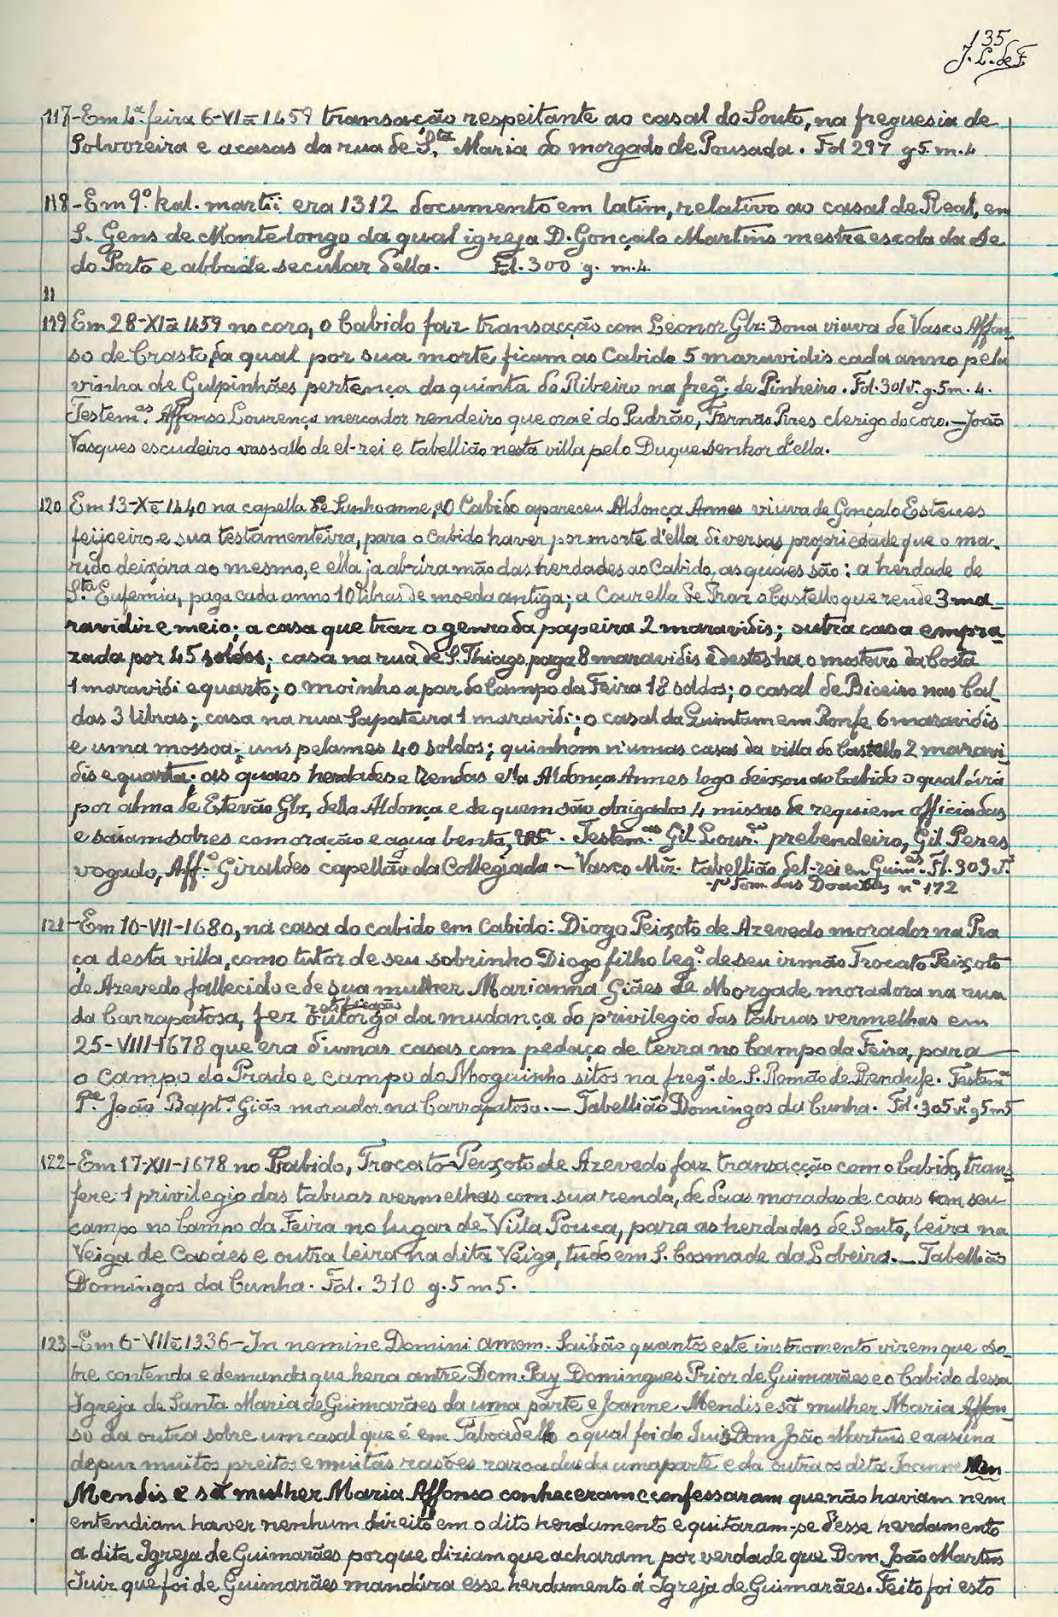 135
J. L. de F.
117-Em 4ª feira 6-VI-1459 transação respeitante ao casal do Souto, na freguesia de
Polvoreira e a casas da rua de S.ta Maria do morgado de Pousada. Fol 297 g 5. m. 4
118-Em 9.º kal. martii era 1312 documento em latim, relativo ao casal de Real, em
S. Gens de Montelongo da qual igreja D. Gonçalo Martins mestre escola da Se
do Porto e abbade secular della. Fl. 300 g. m. 4.
11
119 Em 28-XI-1459 no coro, o Cabido faz transacção com Leonor Glz: Dona viuva de Vasco Affon-
so de Crasto da qual por sua morte ficam ao Cabido 5 maravidis cada anno pela
vinha de Gulpinhães pertença da quinta do Ribeiro na freg.ª de Pinheiro. Fol. 301 v. g. 5 m. 4.
Testem.as Affonso Lourenço mercador rendeiro que ora é do Padrão, Fernão Pires clerigo do coro.—João
Vasques escudeiro vassallo de el-rei e tabellião nesta villa pelo Duque senhor d'ella.
120 Em 13-X-1440 na capella de Sunhoanne, Cabido apareceu Aldonça Annes viuva de Gonçalo Esteves
feijoeiro e sua testamenteira, para o Cabido haver por morte d'ella diversas propriedade que o ma-
rido deixára ao mesmo, e ella ja abrira mão das herdades ao Cabido, as quaes são: a herdade de
S.ta Eufemia, paga cada anno 10 libras de moeda antiga; a Courella de Traz o Castello que rende 3 ma-
ravidiz e meio; a casa que traz o genro da papeira 2 maravidis; outra casa empra-
zada por 45 soldos; casa na rua de S. Thiago paga 8 maravidis e destes ha o mosteiro da Costa
1 maravidi e quarto; o moinho a par do Campo da Feira 18 soldos; o casal de Biceiro nas Cal-
das 3 libras; casa na rua Sapateira 1 maravidi; o casal da Quintam em Ronfe 6 maravidis
e uma mossoa; uns pelames 40 soldos; quinhom n'umas casas da villa do Castello 2 maravi-
dis e quarta. as quaes herdades e rendas ella Aldonça Annes logo deixou ao Cabido o qual
por alma de Estevão Glz, della Aldonça e de quem são obrigados 4 missas de requiem officiadas
e saiam sobres com oração e agua benta, Testem.as Gil Lour.ço prebendeiro, Gil Peres
vogado, Aff.º Giraldes capellão da Collegiada — Vasco Miz. tabellião del-rei em Guim.es Fl. 303 v.
Tom. das Doações nº 172
121-Em 10-VII-1680, na casa do cabido em Cabido: Diogo Peixoto de Azevedo morador na Pra
ça desta villa, como tutor de seu sobrinho Diogo filho leg.º de seu irmão Trocato Peixoto
de Azevedo fallecido e de sua mulher Marianna Giães de Morgade moradora na rua
da Carrapatosa, fez ratificação outorga da mudança do privilegio das tabuas vermelhas em
25-VIII-1678 que era d'umas casas com pedaço de terra no Campo da Feira, para
o Campo do Prado e campo do Moguinho sitos na freg.ª de S. Romão de Rendufe. Testem.as
P.e João Bapt.ª Gião morador na Carrapatosa.—Tabellião Domingos da Cunha. Fol. 305 v.º g 5 m 5
122-Em 17-XII-1678 no Cabido, Trocato Peixoto de Azevedo faz transacção com o Cabido, trans-
fere 1 privilegio das tabuas vermelhas com sua renda, de duas moradas de casas com seu
campo no Campo da Feira no lugar de Villa Pouca, para as herdades de Souto, leira na
Veiga de Casaes e outra leira na dita Veiga, tudo em S. Cosmade da Lobeira.—Tabellião
Domingos da Cunha. Fol. 310 g. 5 m 5.
123-Em 6-VII-1336-In nomine Domini amem. Saibão quantos este instromento virem que so-
bre contenda e demanda que hera antre Dom Pay Domingues Prior de Guimarães e o Cabido dessa
Igreja de Santa Maria de Guimarães da uma parte e Joanne Mendis e sã mulher Maria Affon-
so da outra sobre um casal que é em Taboadello o qual foi do Juis Dom João Martins e
depur muitos preitos e muitas rasões razoadus du uma parte e da outra os ditos Joanne Men
Mendis e sã mulher Maria Affonso conheceram e confessaram que não haviam nem
entendiam haver nenhum direito em o dito herdamento e quitaram-se d'esse herdamento
a dita Igreja de Guimarães porque diziam que acharam por verdade que Dom João Martins
Juiz que foi de Guimarães mandára esse herdamento á Igreja de Guimarães. Feito foi esto